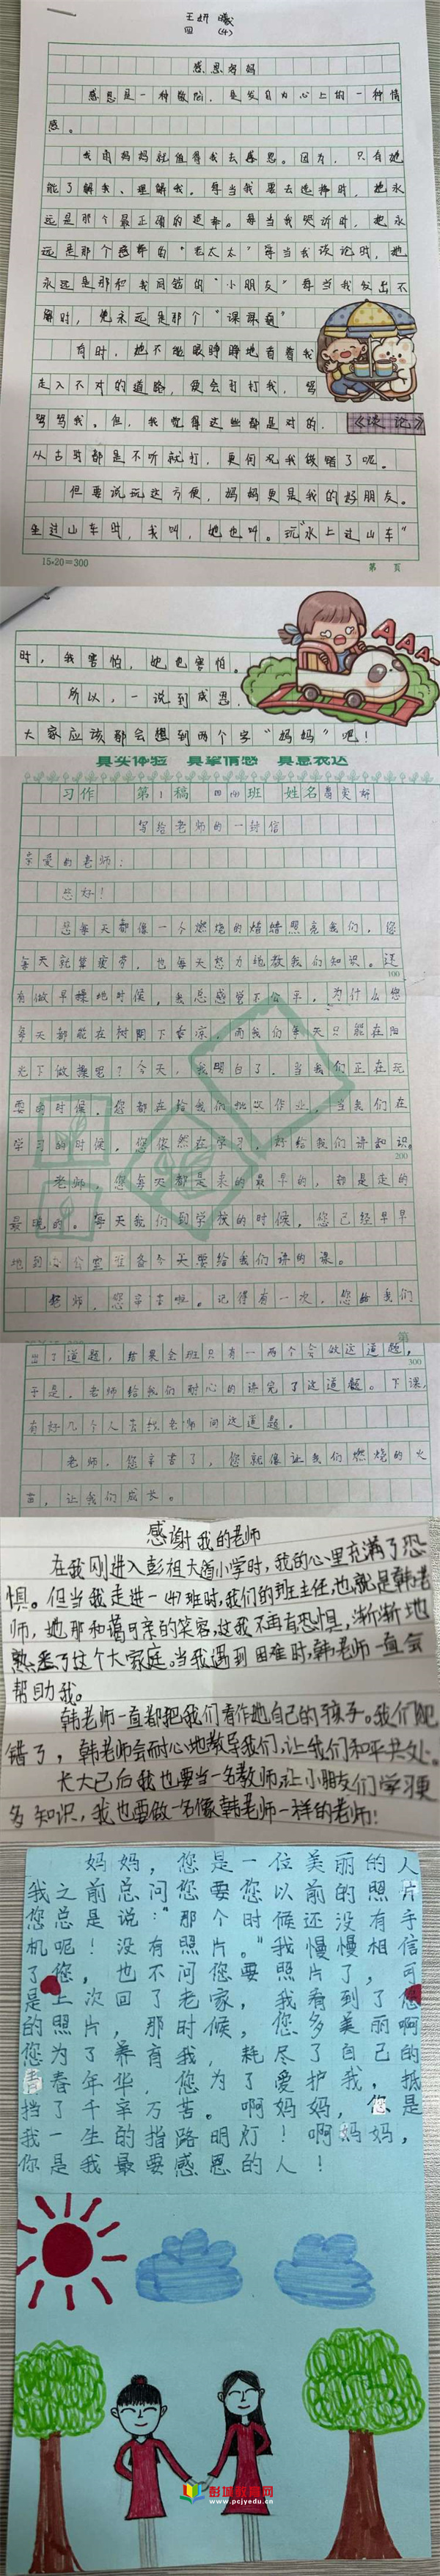 王妍曦
四 (4)
感恩妈妈
感恩是一种敬佩,是发自内心上的一种情
感。
我的妈妈就值得我去感恩。因为,只有她
能了解我、理解我。每当我要去选择时,她永
远是那个最正确的选择。每当我哭诉时,她永
远是那个慈祥的“老太太”每当我谈论时,她
永远是那和我同龄的“小朋友”每当我发出不
解时,她永远是那个“课课通”
有时,她不能眼睁睁地看着我
走入不对的道路,便会打打我,骂
骂骂我。但,我觉得这些都是对的,
《谈论》
从古时都是不听就打,更何况我做错了呢。
但要说玩这方便,妈妈更是我的好朋友。
坐过山车时,我叫,她也叫。玩“水上过山车”
15×20=300
第 页
时,我害怕,她也害怕。
AAAA~
所以,一说到感恩,
大家应该都会想到两个字“妈妈”吧!
真实体验 真挚情感 真意表达
习作 第1稿 四(4)班 姓名
写给老师的一封信
亲爱的老师:
您好!
您每天都像一个燃烧的蜡烛照亮我们,您
每天就算疲劳,也每天努力地教我们知识。还
100
有做早操地时候,我总感觉不公平,为什么您
每天都能在树阴下乘凉,而我们每天只能在阳
光下做操呢?今天,我明白了。当我们正在玩
耍的时候,您都在给我们批改作业,当我们在
学习的时候,您依然在学习,好给我们讲知识。
200
老师,您每天都是来的最早的,却是走的
最晚的。每天我们到学校的时候,您已经早早
地到办公室准备今天要给我们讲的课。
老师,您辛苦啦。记得有一次,您给我们
第
出了道题,结果全班只有一两个会做这道题,
300
于是,老师给我们耐心的讲完了这道题。下课,
有好几个人去找老师问这道题。
老师,您辛苦了,您就像让我们燃烧的火
苗,让我们成长。
感谢我的老师
在我刚进入彭祖大道小学时,我的心里充满了恐
惧。但当我走进一(4)班时,我们的班主任,也就是韩老
师,她那和蔼可亲的笑容,这我不再有恐惧,渐渐地
熟悉了这个大家庭。当我遇到困难时,韩老师一直会
帮助我。
韩老师一直都把我们看作她自己的孩子。我们犯
错了,韩老师会耐心地教导我们,让我们和平共处。
长大已后我也要当一名教师,让小朋友们学习更
多知识,我也要做一名像韩老师一样的老师!
妈妈,您是一位美丽的人
我之前总问您要您以前的照片
您总是说:“那个时候还没有手
机呢!没有照片。”我慢慢相信
了您,也不问您要照片了,可
是上次回老家,我看到了您
的照片,那时候,您多美丽啊
您为了养育我,耗尽了自己的
青春年华,您为了爱护我,抵
挡了千辛万苦。啊妈妈,您是
我一生的指路明灯!啊妈妈,
你是我最要感恩的人!
彭城教育网
www.pcjyedu.cn